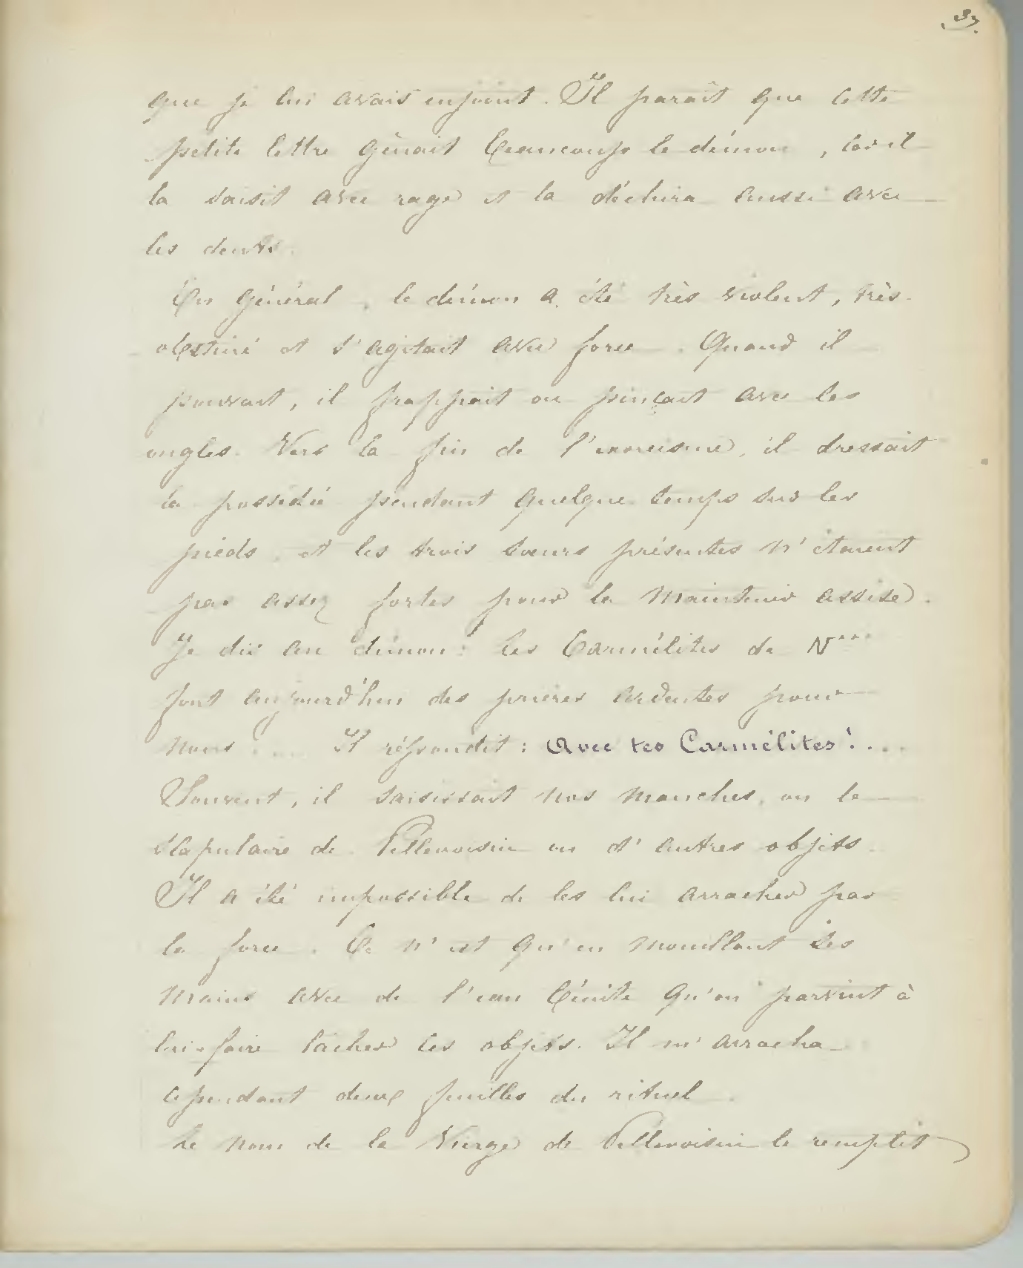 37.
que je lui avais enjoint. Il paraît que cette
petite lettre gênait beaucoup le démon, car il
la saisit avec rage et la déchira aussi avec
les dents.
En général, le démon a été très violent, très
obstiné et s'agitait avec force. Quand il
pouvait, il frappait ou pinçait avec les
ongles. Vers la fin de l'exorcisme, il dressait
la possédée pendant quelque temps sur les
pieds, et les trois sœurs présentes n'étaient
pas assez fortes pour la maintenir assise.
Je dis au démon : les Carmélites de N***
font aujourd'hui des prières ardentes pour
nous .... Il répondit : Avec tes Carmélites !...
Souvent, il saisissait nos manches, ou le
scapulaire de Pellevoisin ou d'autres objets.
Il a été impossible de les lui arracher par
la force. Ce n'est qu'en mouillant ses
mains avec de l'eau bénite qu'on parvint à
lui faire lâcher ces objets. Il m'arracha
cependant deux feuilles du rituel.
Le nom de la Vierge de Pellevoisin le remplit